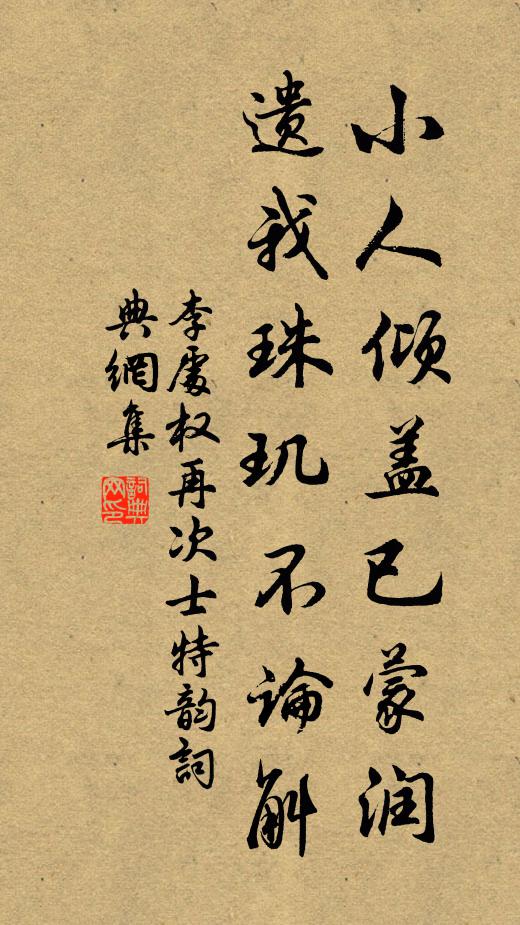 小人倾盖已蒙润
遗我珠玑不论斛
李處权再次士特韵詞
典網集
詞典网印